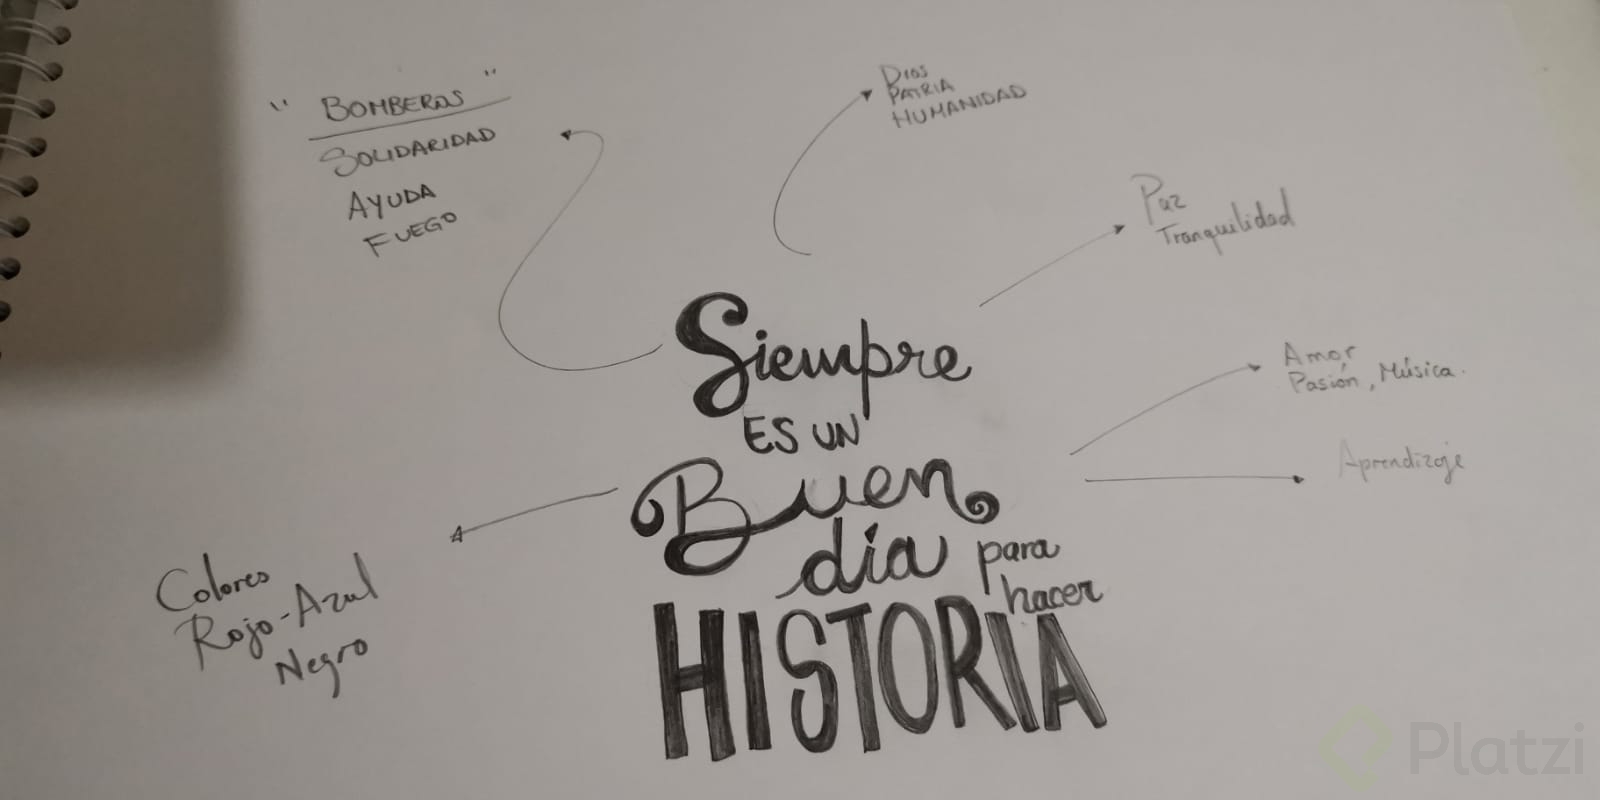 " BOMBEROS "
SOLIDARIDAD
AYUDA
FUEGO
DIOS
PATRIA
HUMANIDAD
Paz
Tranquilidad
Amor
Pasión, Música.
Aprendizaje
Siempre
ES UN
Buen
día para
hacer
HISTORIA
Colores
Rojo-Azul
Negro
Platzi